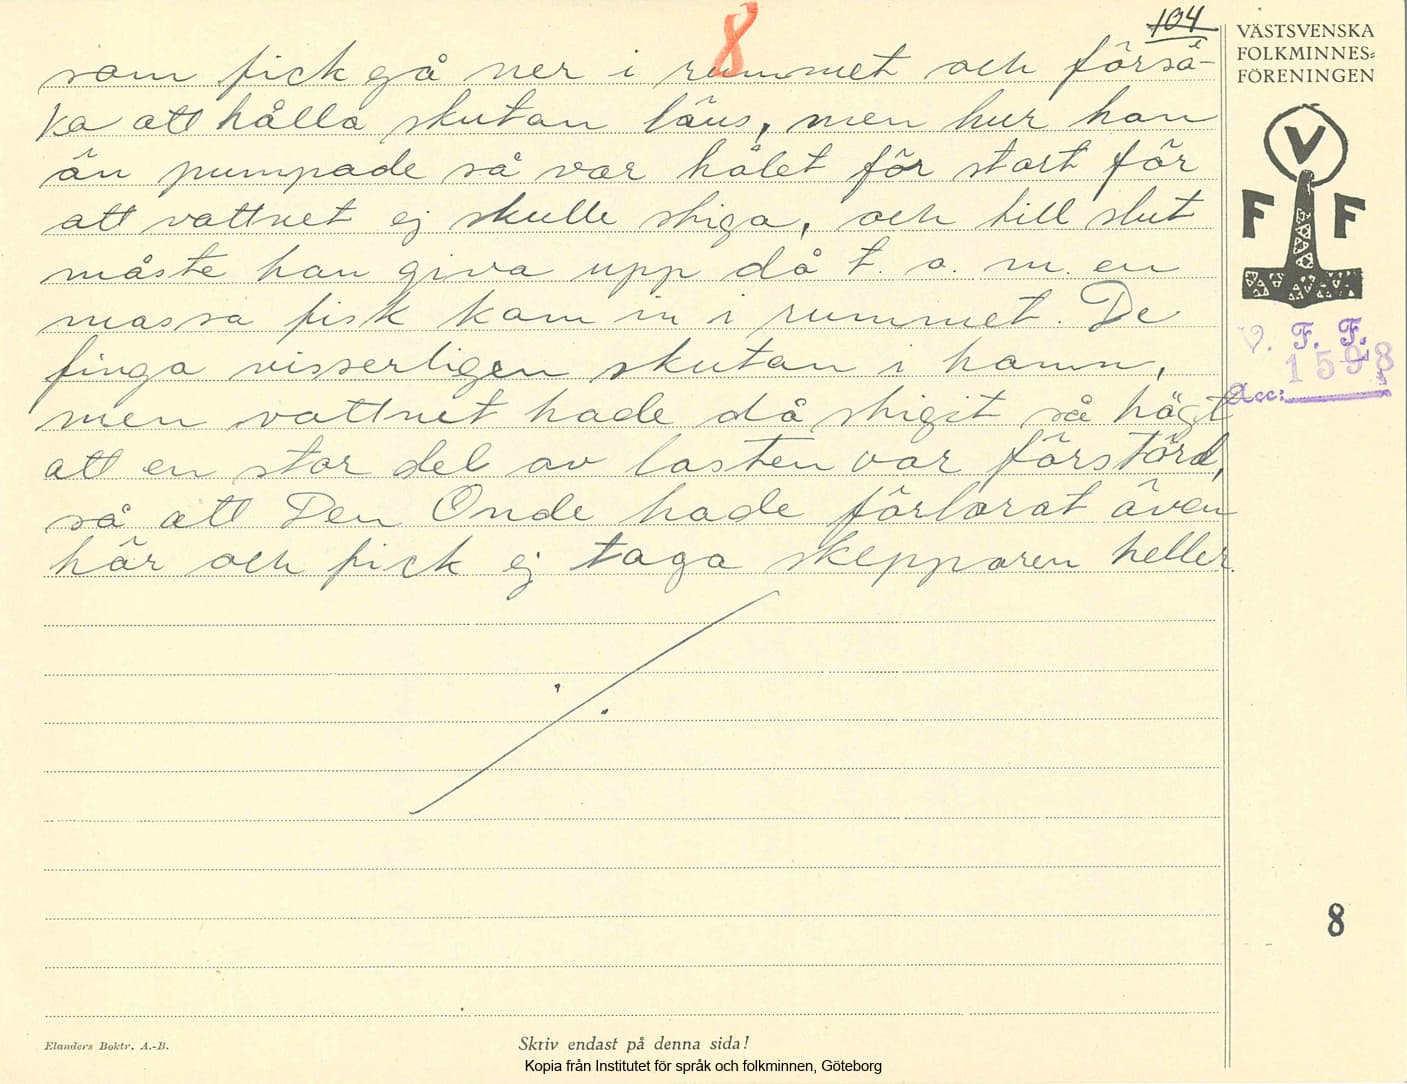 8
104
som fick gå ner i rummet och försö-
ka att hålla skutan läns, men hur han
än pumpade så var hålet för stort för
att vattnet ej skulle stiga, och till slut
måste han giva upp då t. o. m. en
massa fisk kom in i rummet. De
finga visserligen skutan i hamn,
men vattnet hade då stigit så högt
att en stor del av lasten var förstörd,
så att Den Onde hade förlorat även
här och fick ej taga skepparen heller.
VÄSTSVENSKA
FOLKMINNES=
FÖRENINGEN
V
F F
V. F. F.
1598
Acc:
8
Elanders Boktr. A.-B.
Skriv endast på denna sida!
Kopia från Institutet för språk och folkminnen, Göteborg